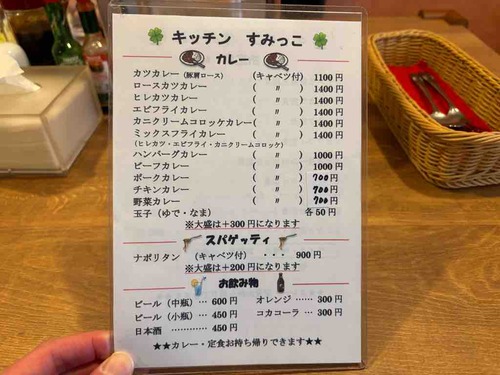 キッチン すみっこ
カレー
カツカレー (豚肩ロース) (キャベツ付) 1100円
ロースカツカレー ( 〃 ) 1400円
ヒレカツカレー ( 〃 ) 1400円
エビフライカレー ( 〃 ) 1400円
カニクリームコロッケカレー ( 〃 ) 1400円
ミックスフライカレー ( 〃 ) 1400円
(ヒレカツ・エビフライ・カニクリームコロッケ)
ハンバーグカレー ( 〃 ) 1000円
ビーフカレー ( 〃 ) 1000円
ポークカレー ( 〃 ) 700円
チキンカレー ( 〃 ) 700円
野菜カレー ( 〃 ) 700円
玉子 (ゆで・なま) 各50円
※大盛は+300円になります
スパゲッティ
ナポリタン (キャベツ付) ・・・ 900円
※大盛は+200円になります
お飲み物
ビール (中瓶) …… 600円 オレンジ …… 300円
ビール (小瓶) …… 450円 コカコーラ …… 300円
日本酒 ………… 450円
★★カレー・定食お持ち帰りできます★★